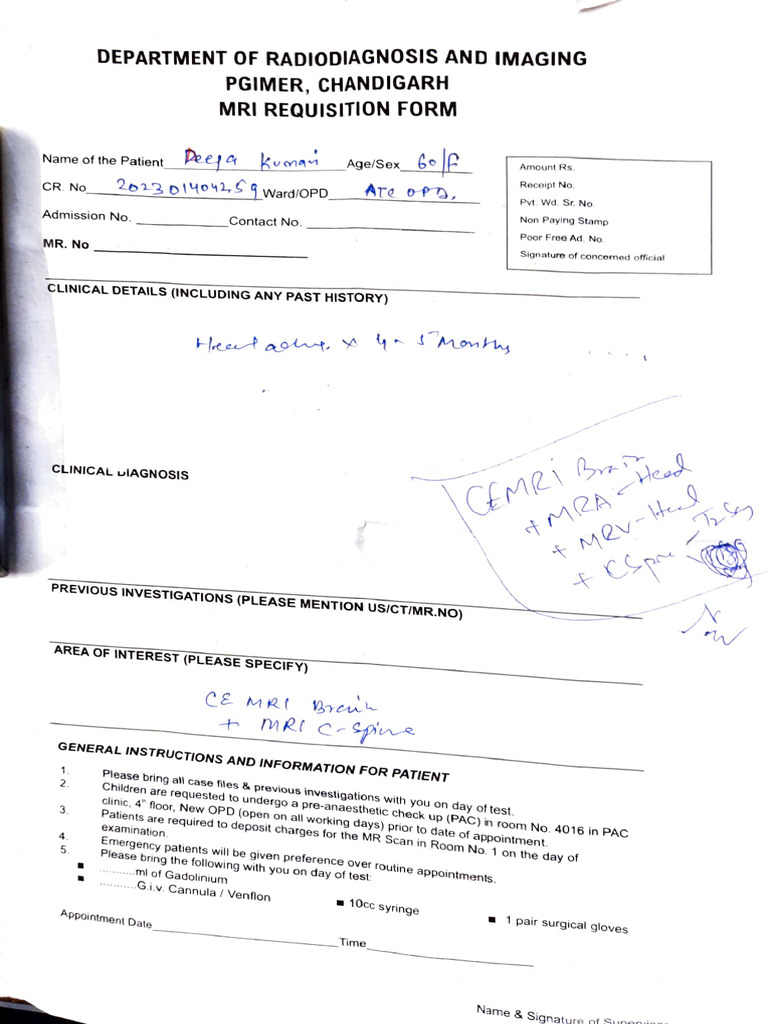 DEPARTMENT OF RADIODIAGNOSIS AND IMAGING
PGIMER, CHANDIGARH
MRI REQUISITION FORM
Name of the Patient Deepa Kumari Age/Sex 60/F
CR. No 202301404259 Ward/OPD ATC OPD.
Admission No. Contact No.
MR. No
Amount Rs.
Receipt No.
Pvt. Wd. Sr. No.
Non Paying Stamp
Poor Free Ad. No.
Signature of concerned official
CLINICAL DETAILS (INCLUDING ANY PAST HISTORY)
Headache x 4-5 Months
CLINICAL DIAGNOSIS
CEMRI Brain
+ MRA - Head
+ MRV - Head
+ CSpine - T2 Sag
PREVIOUS INVESTIGATIONS (PLEASE MENTION US/CT/MR.NO)
AREA OF INTEREST (PLEASE SPECIFY)
CE MRI Brain
+ MRI C-Spine
GENERAL INSTRUCTIONS AND INFORMATION FOR PATIENT
1. Please bring all case files & previous investigations with you on day of test.
2. Children are requested to undergo a pre-anaesthetic check up (PAC) in room No. 4016 in PAC
clinic, 4th floor, New OPD (open on all working days) prior to date of appointment.
3. Patients are required to deposit charges for the MR Scan in Room No. 1 on the day of
examination.
4. Emergency patients will be given preference over routine appointments.
5. Please bring the following with you on day of test:
■ ..........ml of Gadolinium
■ ..........G.i.v. Cannula / Venflon ■ 10cc syringe ■ 1 pair surgical gloves
Appointment Date Time
Name & Signature of